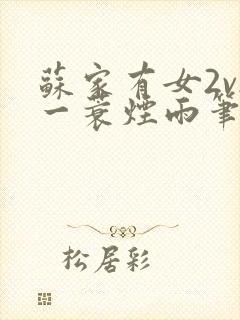 蘇家有女2v
一蓑煙雨筆
松居彩